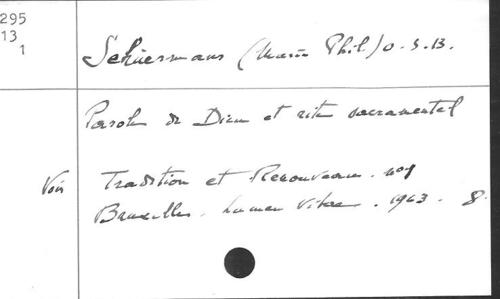 295
13
1
Schüermans (Marie Phil) O.S.B.
Parole de Dieu et rite sacramentel
Voir Tradition et Renouveau. n°1
Bruxelles. Lumen Vitae. 1963. 8°